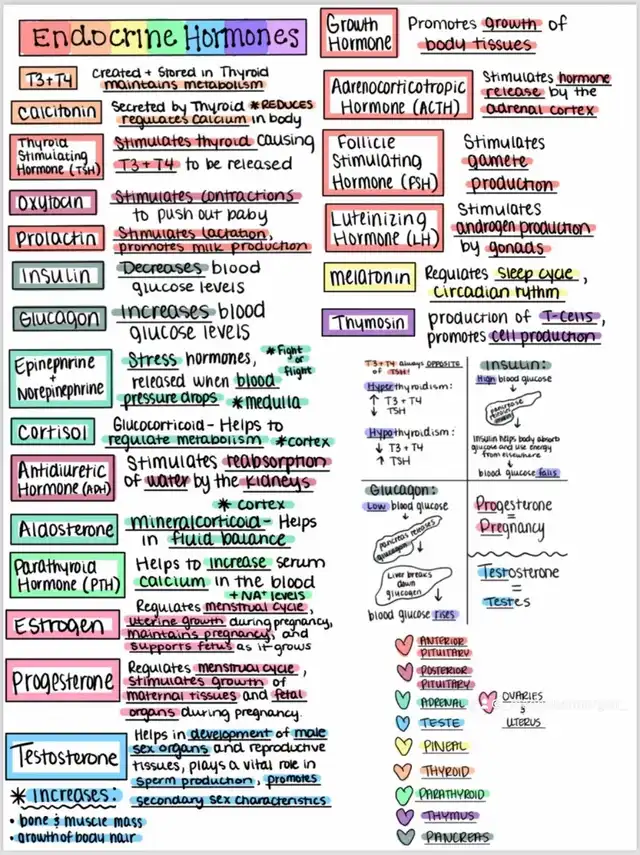 Endocrine Hormones
T3+T4
created + stored in Thyroid
maintains metabolism
Calcitonin
Secreted by Thyroid *REDUCES
regulates calcium in body
Thyroid
Stimulating
Hormone (TSH)
Stimulates thyroid causing
T3+T4 to be released
Oxytocin
Stimulates contractions
to push out baby
Prolactin
Stimulates lactation,
promotes milk production
Insulin
Decreases blood
glucose levels
Glucagon
Increases blood
glucose levels
Epinephrine
+
Norepinephrine
Stress hormones,
released when blood
pressure drops
*Fight
or
flight
*medulla
Cortisol
Glucocorticoid - Helps to
regulate metabolism
*cortex
Antidiuretic
Hormone (ADH)
Stimulates reabsorption
of water by the kidneys
Aldosterone
*cortex
mineralcorticoid - Helps
in fluid balance
Parathyroid
Hormone (PTH)
Helps to increase serum
calcium in the blood
+ NA+ levels
Estrogen
Regulates menstrual cycle,
uterine growth during pregnancy,
maintains pregnancy, and
supports fetus as it grows
Progesterone
Regulates menstrual cycle,
Stimulates growth of
maternal tissues and fetal
organs during pregnancy.
Testosterone
Helps in development of male
sex organs and reproductive
tissues, plays a vital role in
sperm production, promotes
secondary sex characteristics
* increases:
• bone & muscle mass
• growth of body hair
Growth
Hormone
Promotes growth of
body tissues
Adrenocorticotropic
Hormone (ACTH)
Stimulates hormone
release by the
adrenal cortex
Follicle
Stimulating
Hormone (FSH)
Stimulates
gamete
production
Luteinizing
Hormone (LH)
Stimulates
androgen production
by gonads
melatonin
Regulates sleep cycle,
circadian rythm
Thymosin
production of T-Cells,
promotes cell production
T3+T4 always OPPOSITE
of TSH!
Hyperthyroidism:
↑ T3 + T4
↓ TSH
Hypothyroidism:
↓ T3 + T4
↑ TSH
Insulin:
High blood glucose
pancreas
insulin
Insulin helps body absorb
glucose and use energy
from elsewhere
blood glucose falls
Glucagon:
Low blood glucose
pancreas releases
glucagon
Liver breaks
down
glycogen
blood glucose rises
Progesterone
=
Pregnancy
Testosterone
=
Testes
ANTERIOR
PITUITARY
POSTERIOR
PITUITARY
ADRENAL
TESTE
PINEAL
THYROID
PARATHYROID
THYMUS
PANCREAS
OVARIES
&
UTERUS